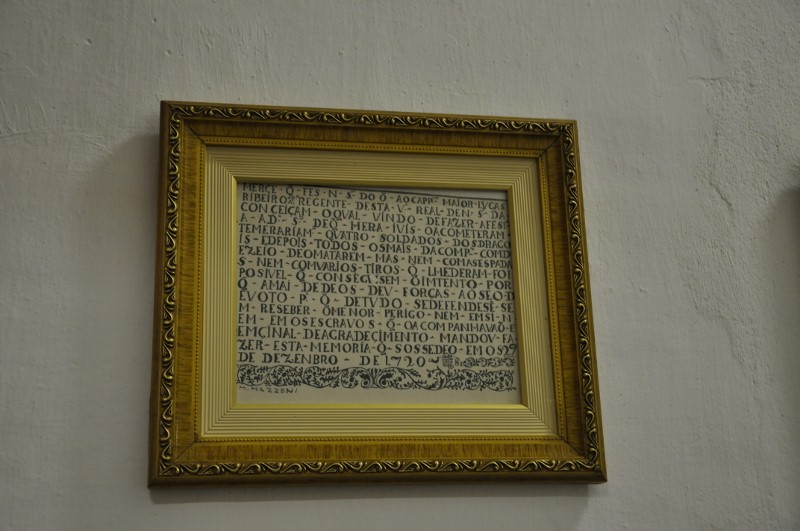 MERCE - Q̃ - FES - N - S - DO Ò - AO CAPP̃ - MAIOR - LVCAS
RIBEIRO REGENTE - DESTA - V - REAL - DE N - S - DA
CONCEIÇAM - O QVAL - VINDO - DE FAZER - A FES
A - AD - S - DE Q̃ - HERA - IVIS - O ACOMETERAM
TEMERARIAM - QVATRO - SOLDADOS - DOS DRAGO
IS - E DEPOIS - TODOS - OS MAIS - DA COMP - COM D
EZEIO - DE O MATAREM - MAS - NEM - COM AS ESPADA
S - NEM - COM VARIOS - TIROS - Q̃ - LHE DERAM - FOI
POSIVEL - Q̃ - CONSEGVISEM - O IMTENTO - POR
Q̃ - A MAI - DE DEOS - DEV - FORÇAS - AO SEO D
EVOTO - P - Q̃ - DE TVDO - SE DEFENDESE - SE
M - RESEBER - O MENOR - PERIGO - NEM - EM SI - N
EM - EM OS ESCRAVOS - Q̃ - O ACOMPANHAVÃO - E
EM ÇINAL - DE AGRADECIMENTO - MANDOV - FA
ZER - ESTA - MEMORIA - Q̃ - SOSSEDEO - EM OS 29
DE DEZENBRO - DE 1720
M. MAZZONI